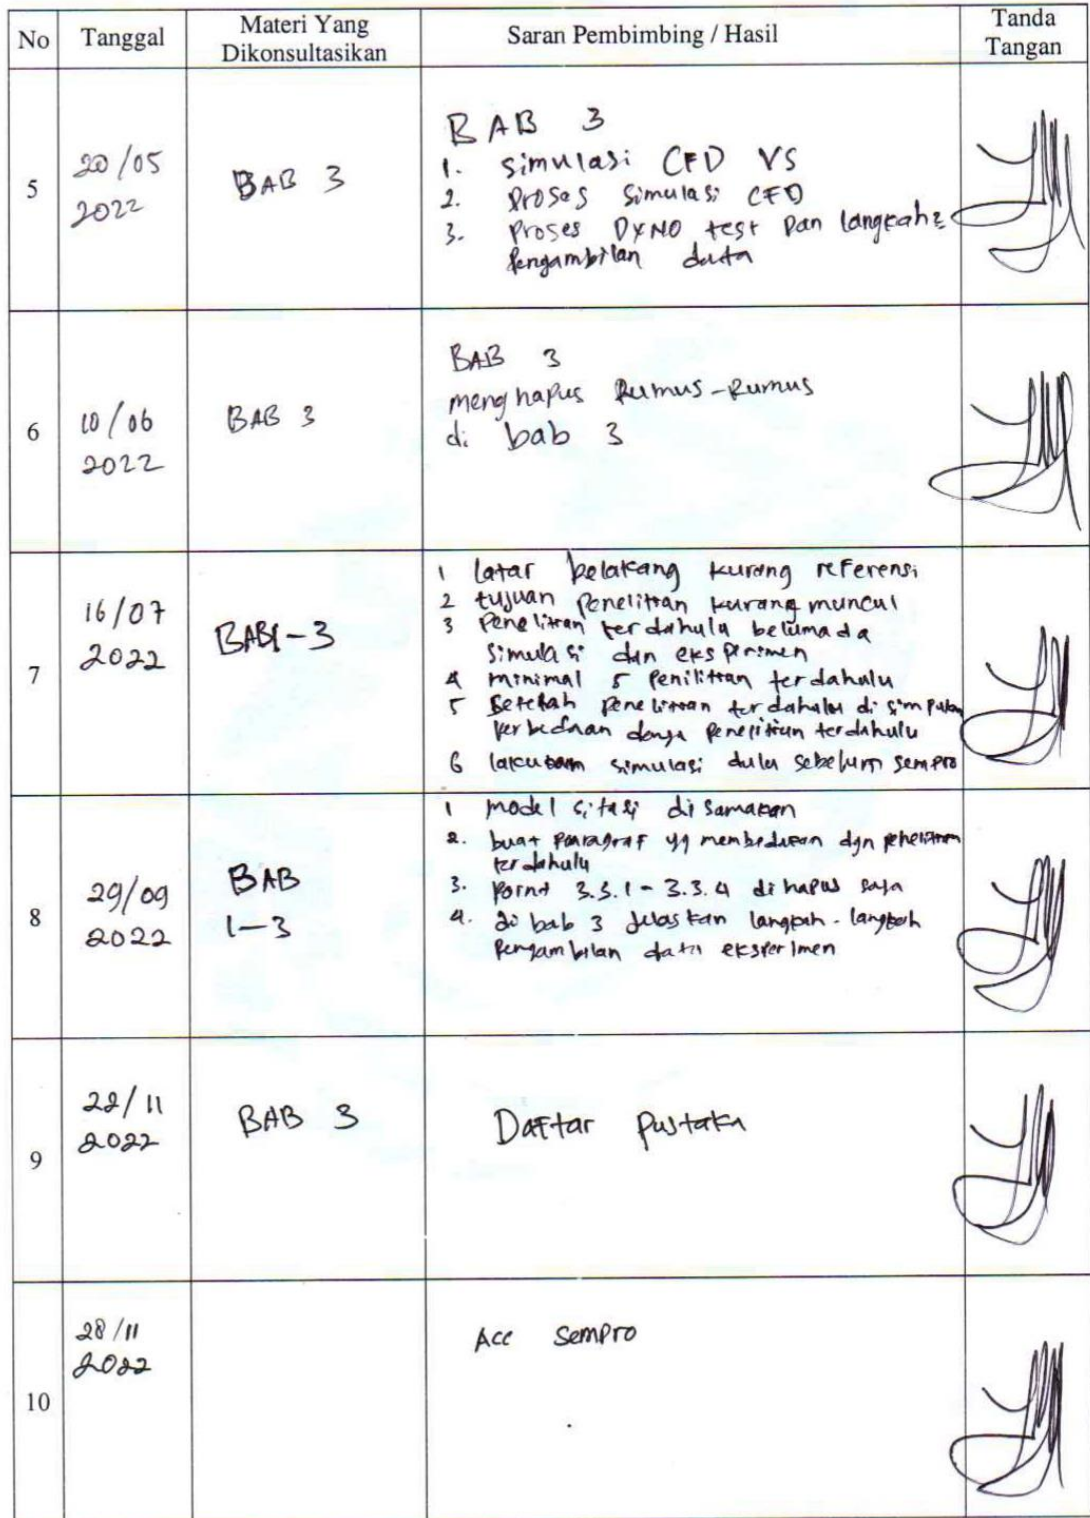 No Tanggal Materi Yang Dikonsultasikan Saran Pembimbing / Hasil Tanda Tangan
5
20/05
2022
BAB 3
BAB 3
1. Simulasi CFD VS
2. Proses Simulasi CFD
3. Proses DYNO test Dan langkah2
Pengambilan data
6
10/06
2022
BAB 3
BAB 3
menghapus Rumus-Rumus
di bab 3
7
16/07
2022
BAB1-3
1 latar belakang kurang referensi
2 tujuan penelitian kurang muncul
3 Penelitian terdahulu belum ada
simulasi dan eksperimen
4 minimal 5 Penilitian terdahulu
5 Setelah penelitian terdahulu di simpulan
perbedaan denga penelitian terdahulu
6 lakukan simulasi dulu sebelum sempro
8
29/09
2022
BAB
1-3
1 model sitasi di samakan
2. buat paragraf yg membedakan dgn penelitian
terdahulu
3. Point 3.3.1 - 3.3.4 di hapus saja
4. di bab 3 jelaskan langkah-langkah
Pengambilan data eksperimen
9
22/11
2022
BAB 3
Daftar Pustaka
10
28/11
2022
Acc Sempro